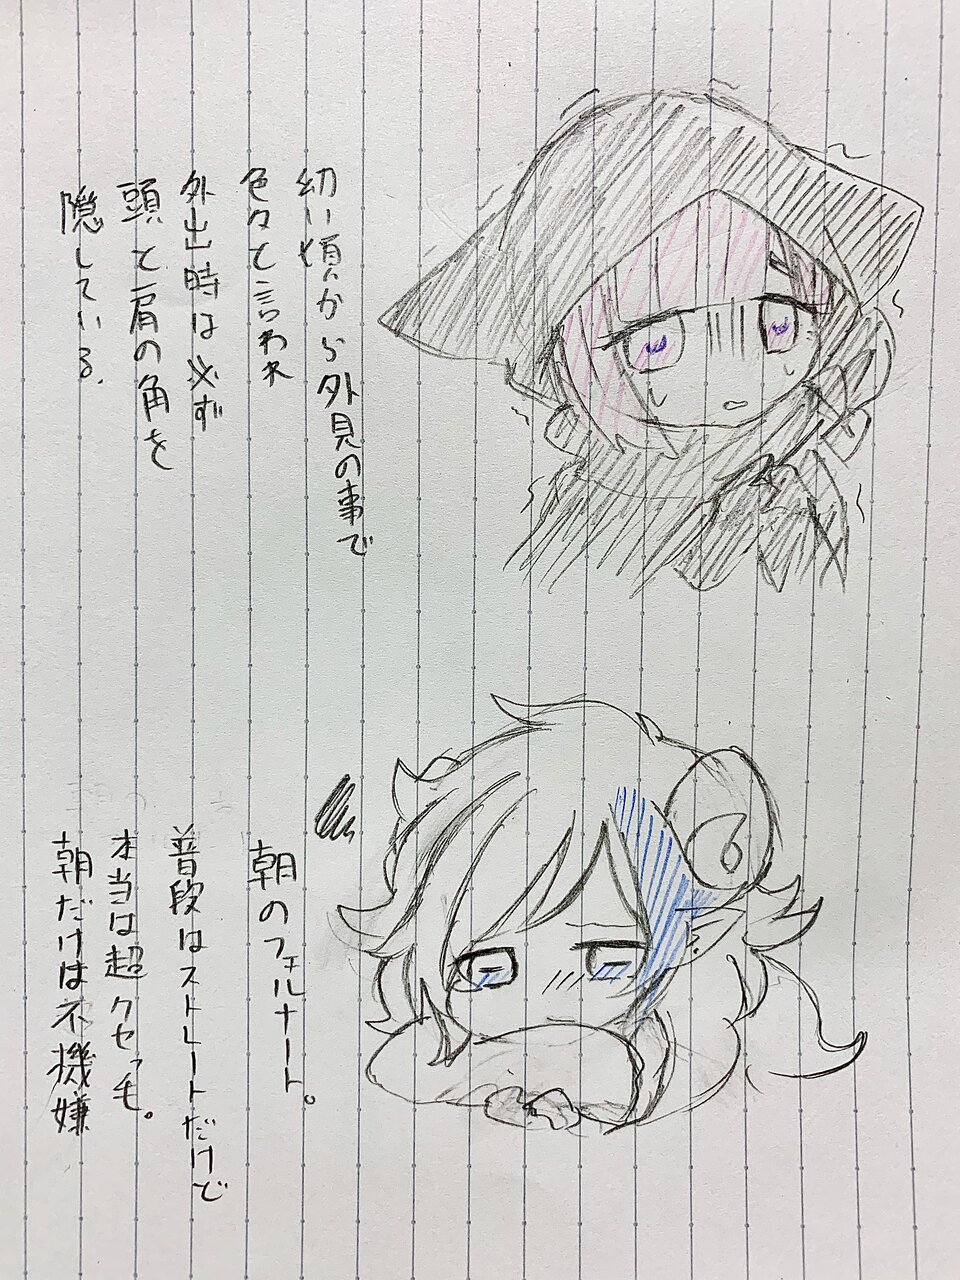 幼い頃から外見の事で
色々と言われ
外出時は必ず
頭と肩の角を
隠している.
朝のフェルナート。
普段はストレートだけで
本当は超クセっ毛。
朝だけは不機嫌